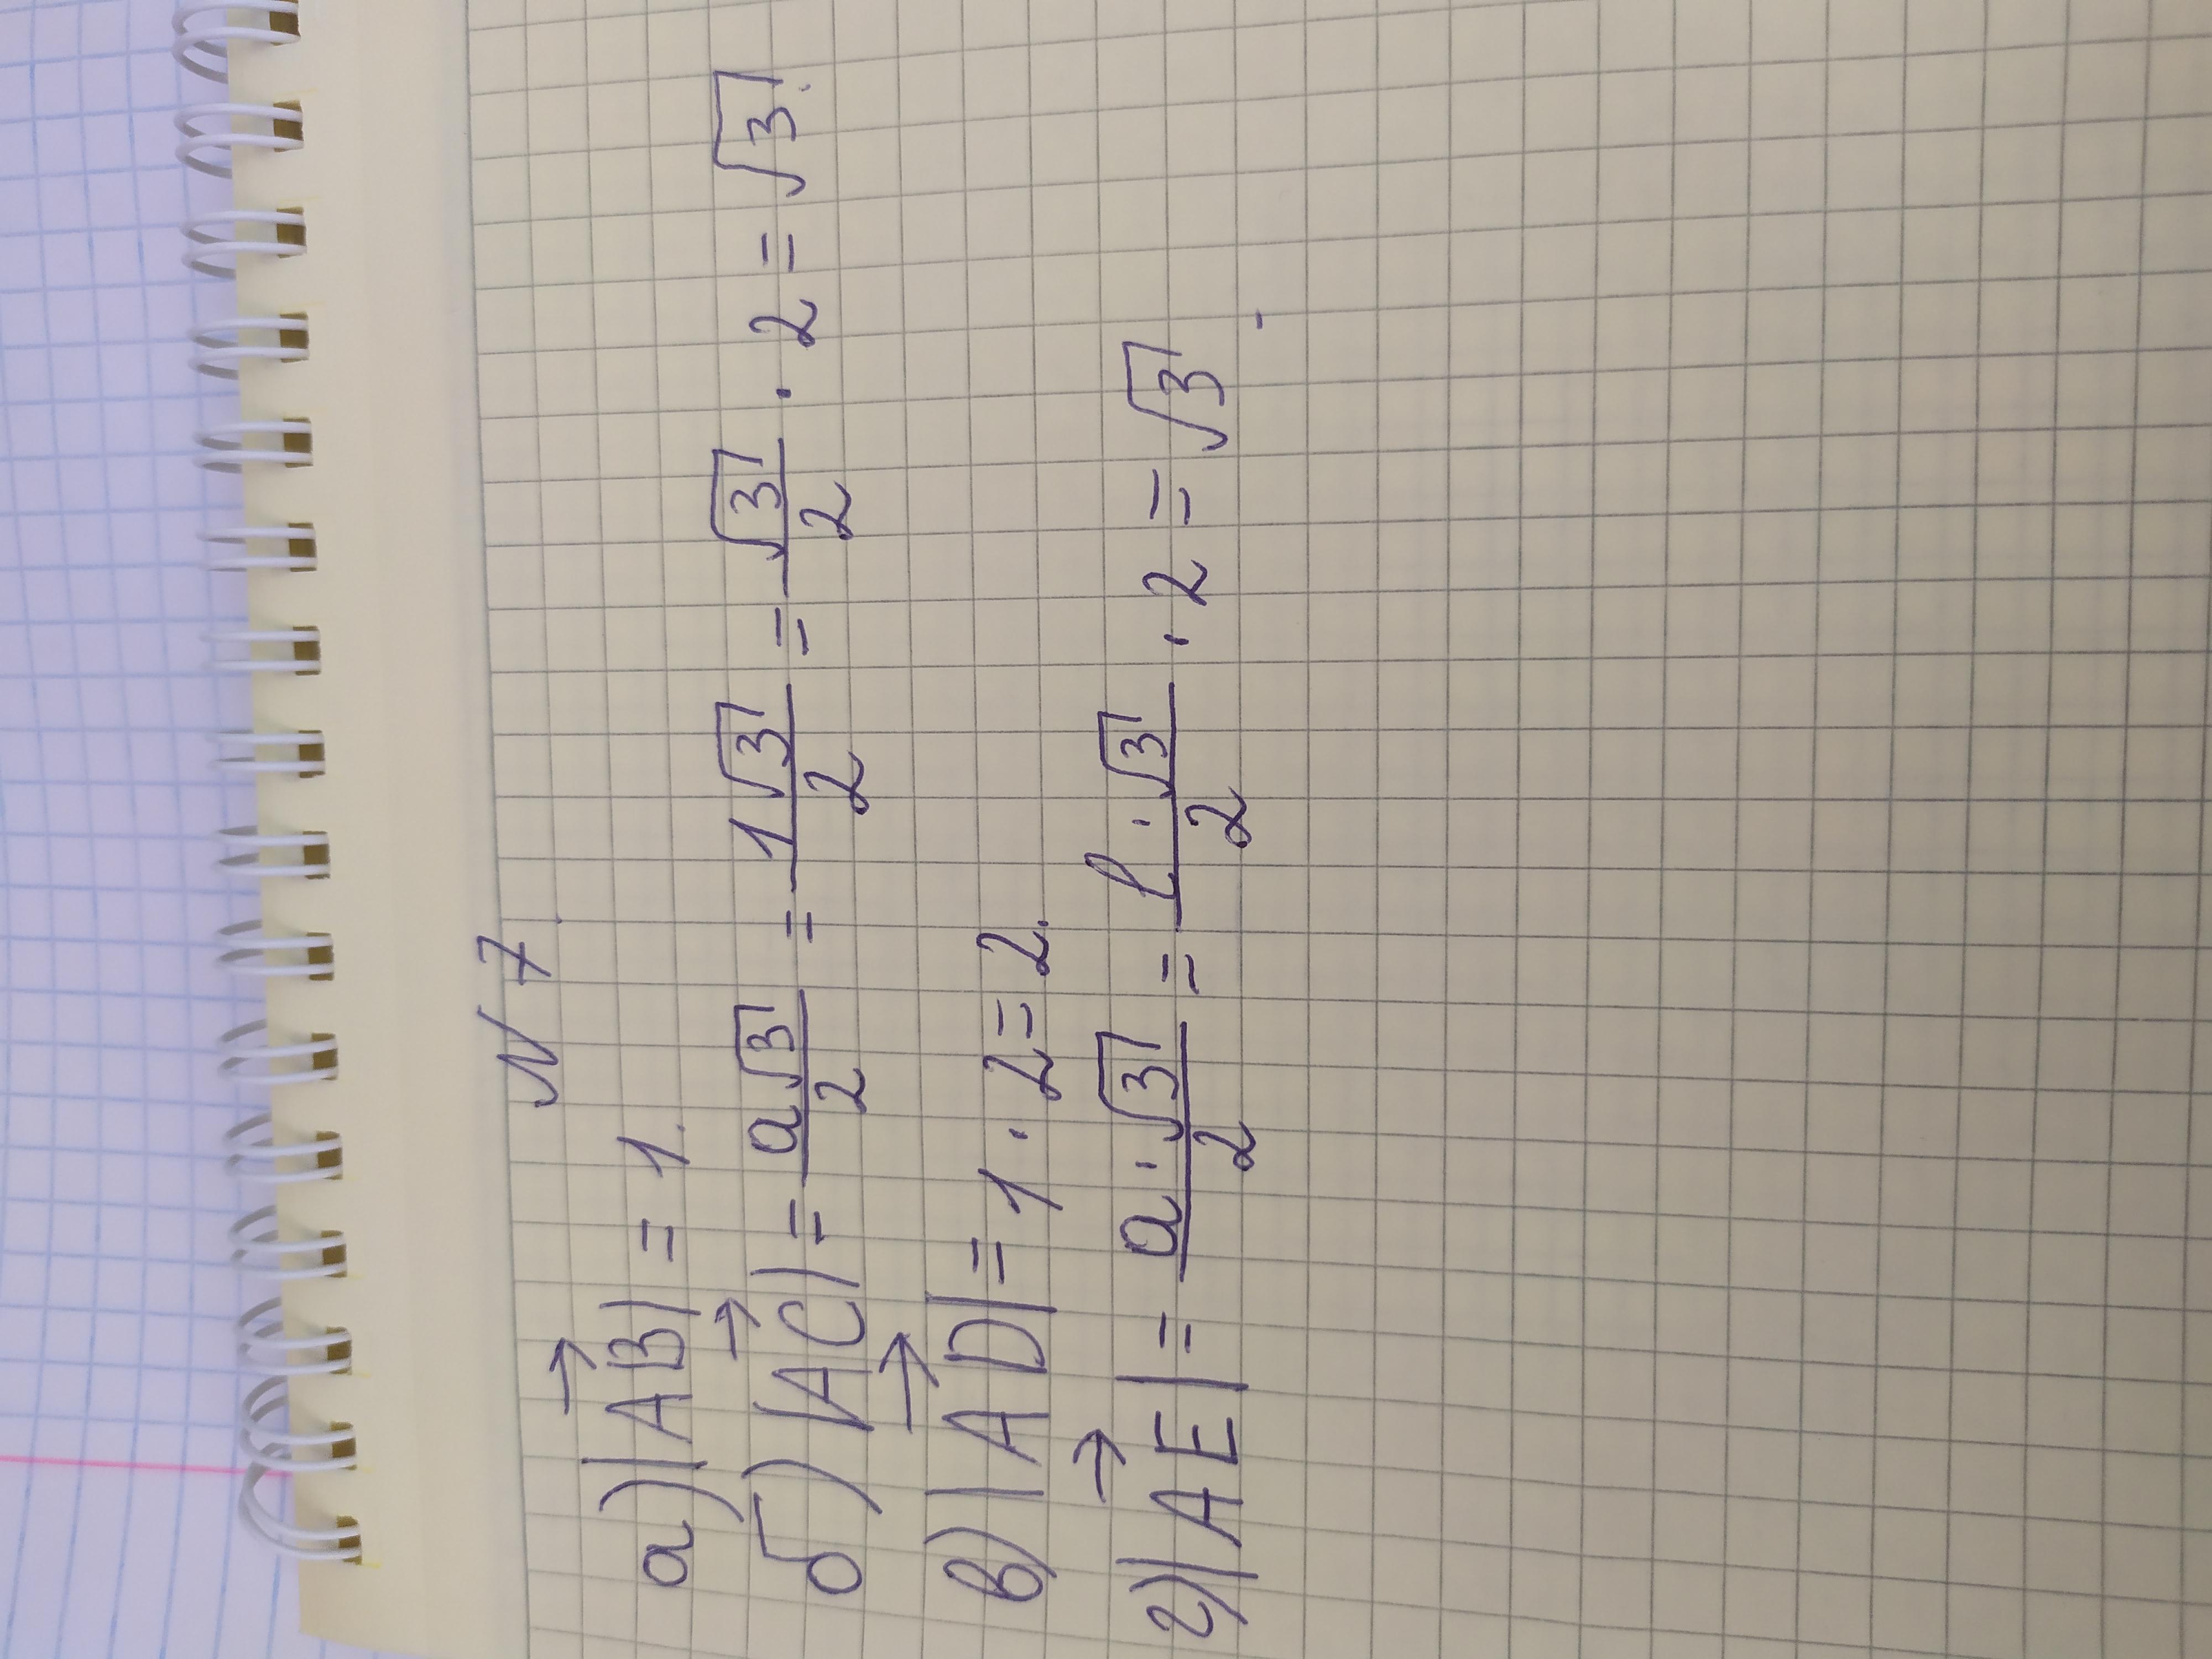 N 7
а) |AB| = 1.
б) |AC| = a√3/2 = 1√3/2 = √3/2 · 2 = √3.
в) |AD| = 1 · 2 = 2.
г) |AE| = a·√3/2 = 1·√3/2 · 2 = √3